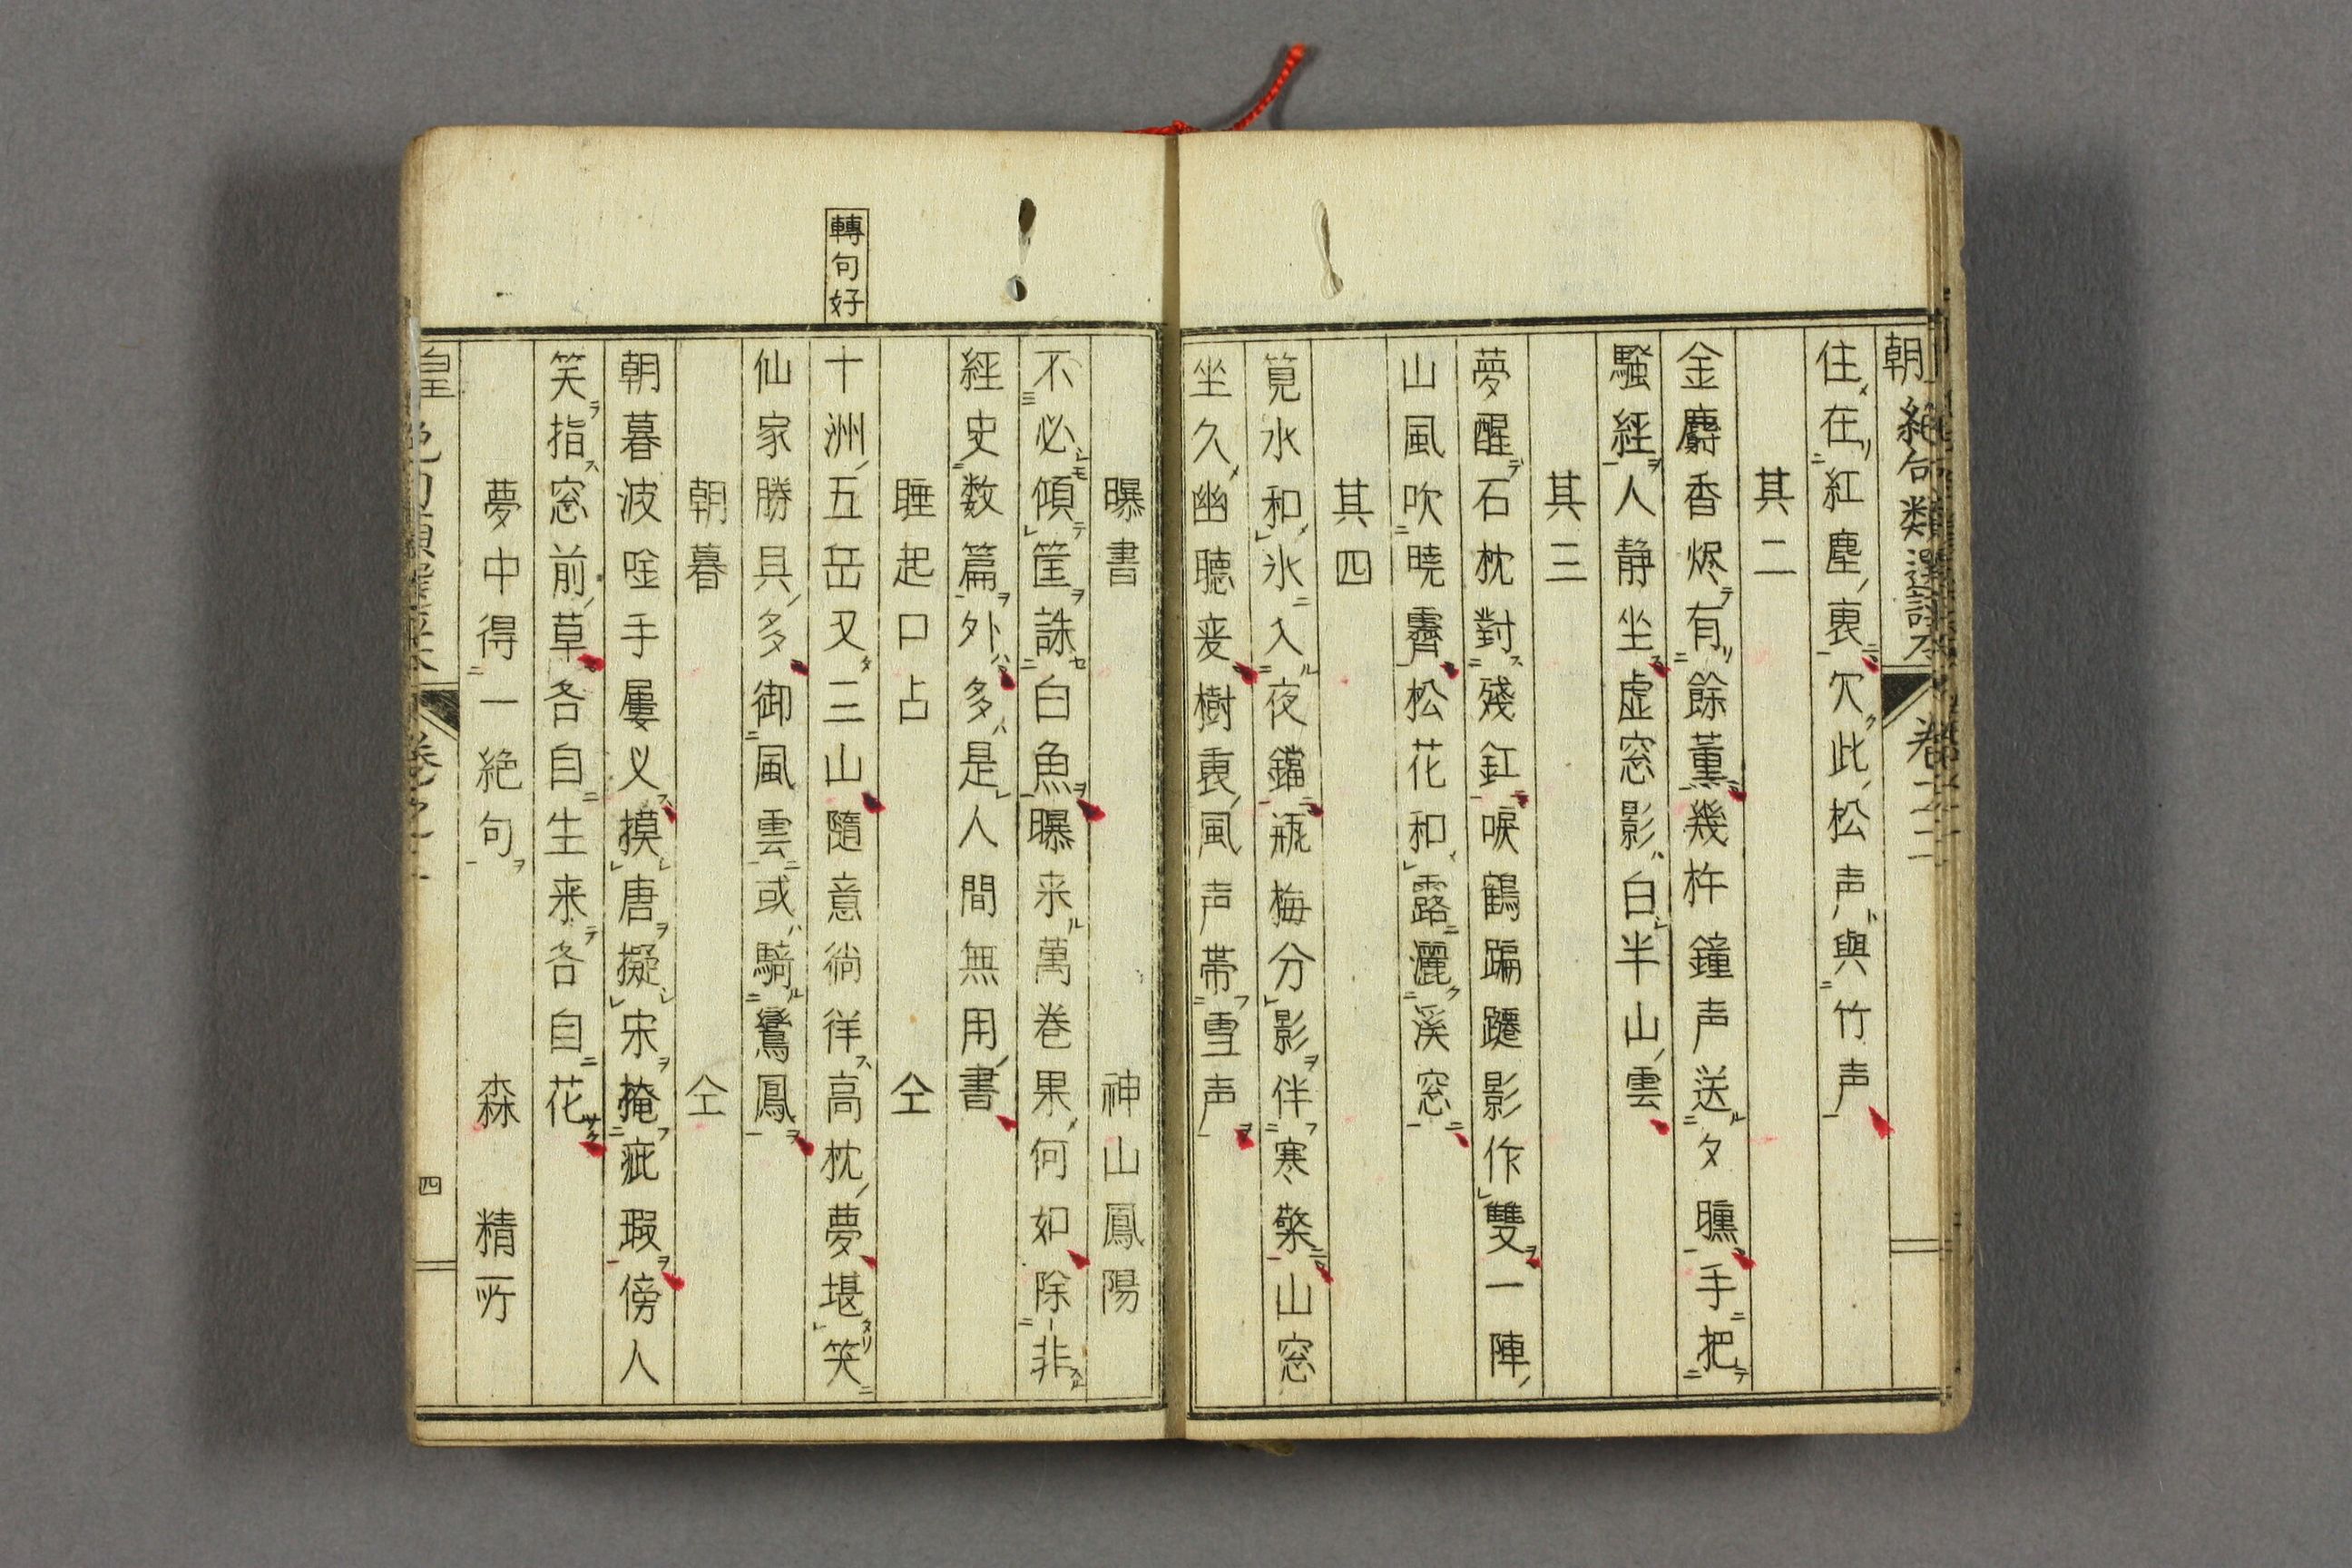 朝絶句類選評本 卷之二
住在紅塵裏欠此松声與竹声
其二
金麝香燼有餘薫幾杵鐘声送夕曛手把
騷經人静坐虚窓影白半山雲
其三
夢醒石枕對殘釭唳鶴蹁躚影作雙一陣
山風吹曉霽松花和露灑溪窓
其四
筧水和氷入夜鐺瓶梅分影伴寒檠山窓
坐久幽聴妾樹裏風声帯雪声
曝書 神山鳳陽
不必傾筐誅白魚曝来萬巻果何如除非
經史数篇外多是人間無用書
睡起口占 仝
轉句好
十洲五岳又三山隨意徜徉高枕夢堪笑
仙家勝具多御風雲或騎鸞鳳
朝暮 仝
朝暮波唫手屢义摸唐擬宋掩疵瑕傍人
笑指窓前草各自生来各自花
夢中得一絶句 森 精所
皇 四